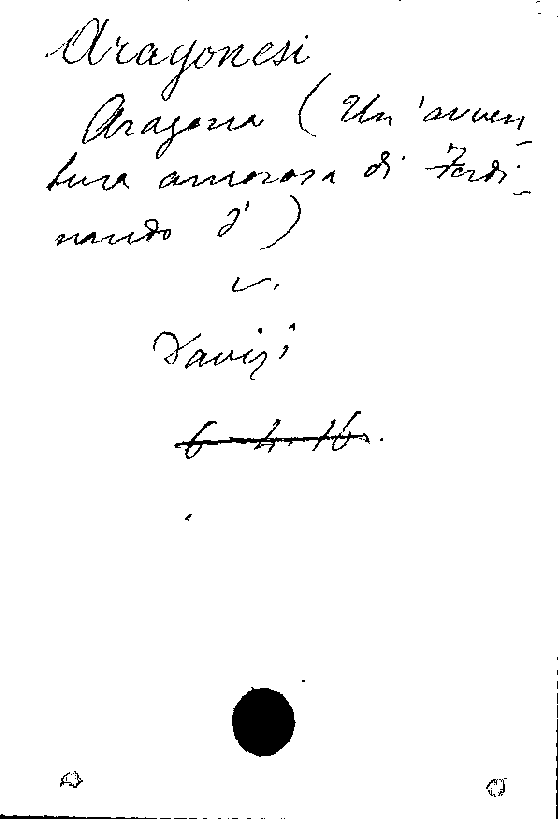 Aragonesi
Aragona (Un'avven_
tura amorosa di Ferdi_
nando d')
v.
Davizi
6-4.16.